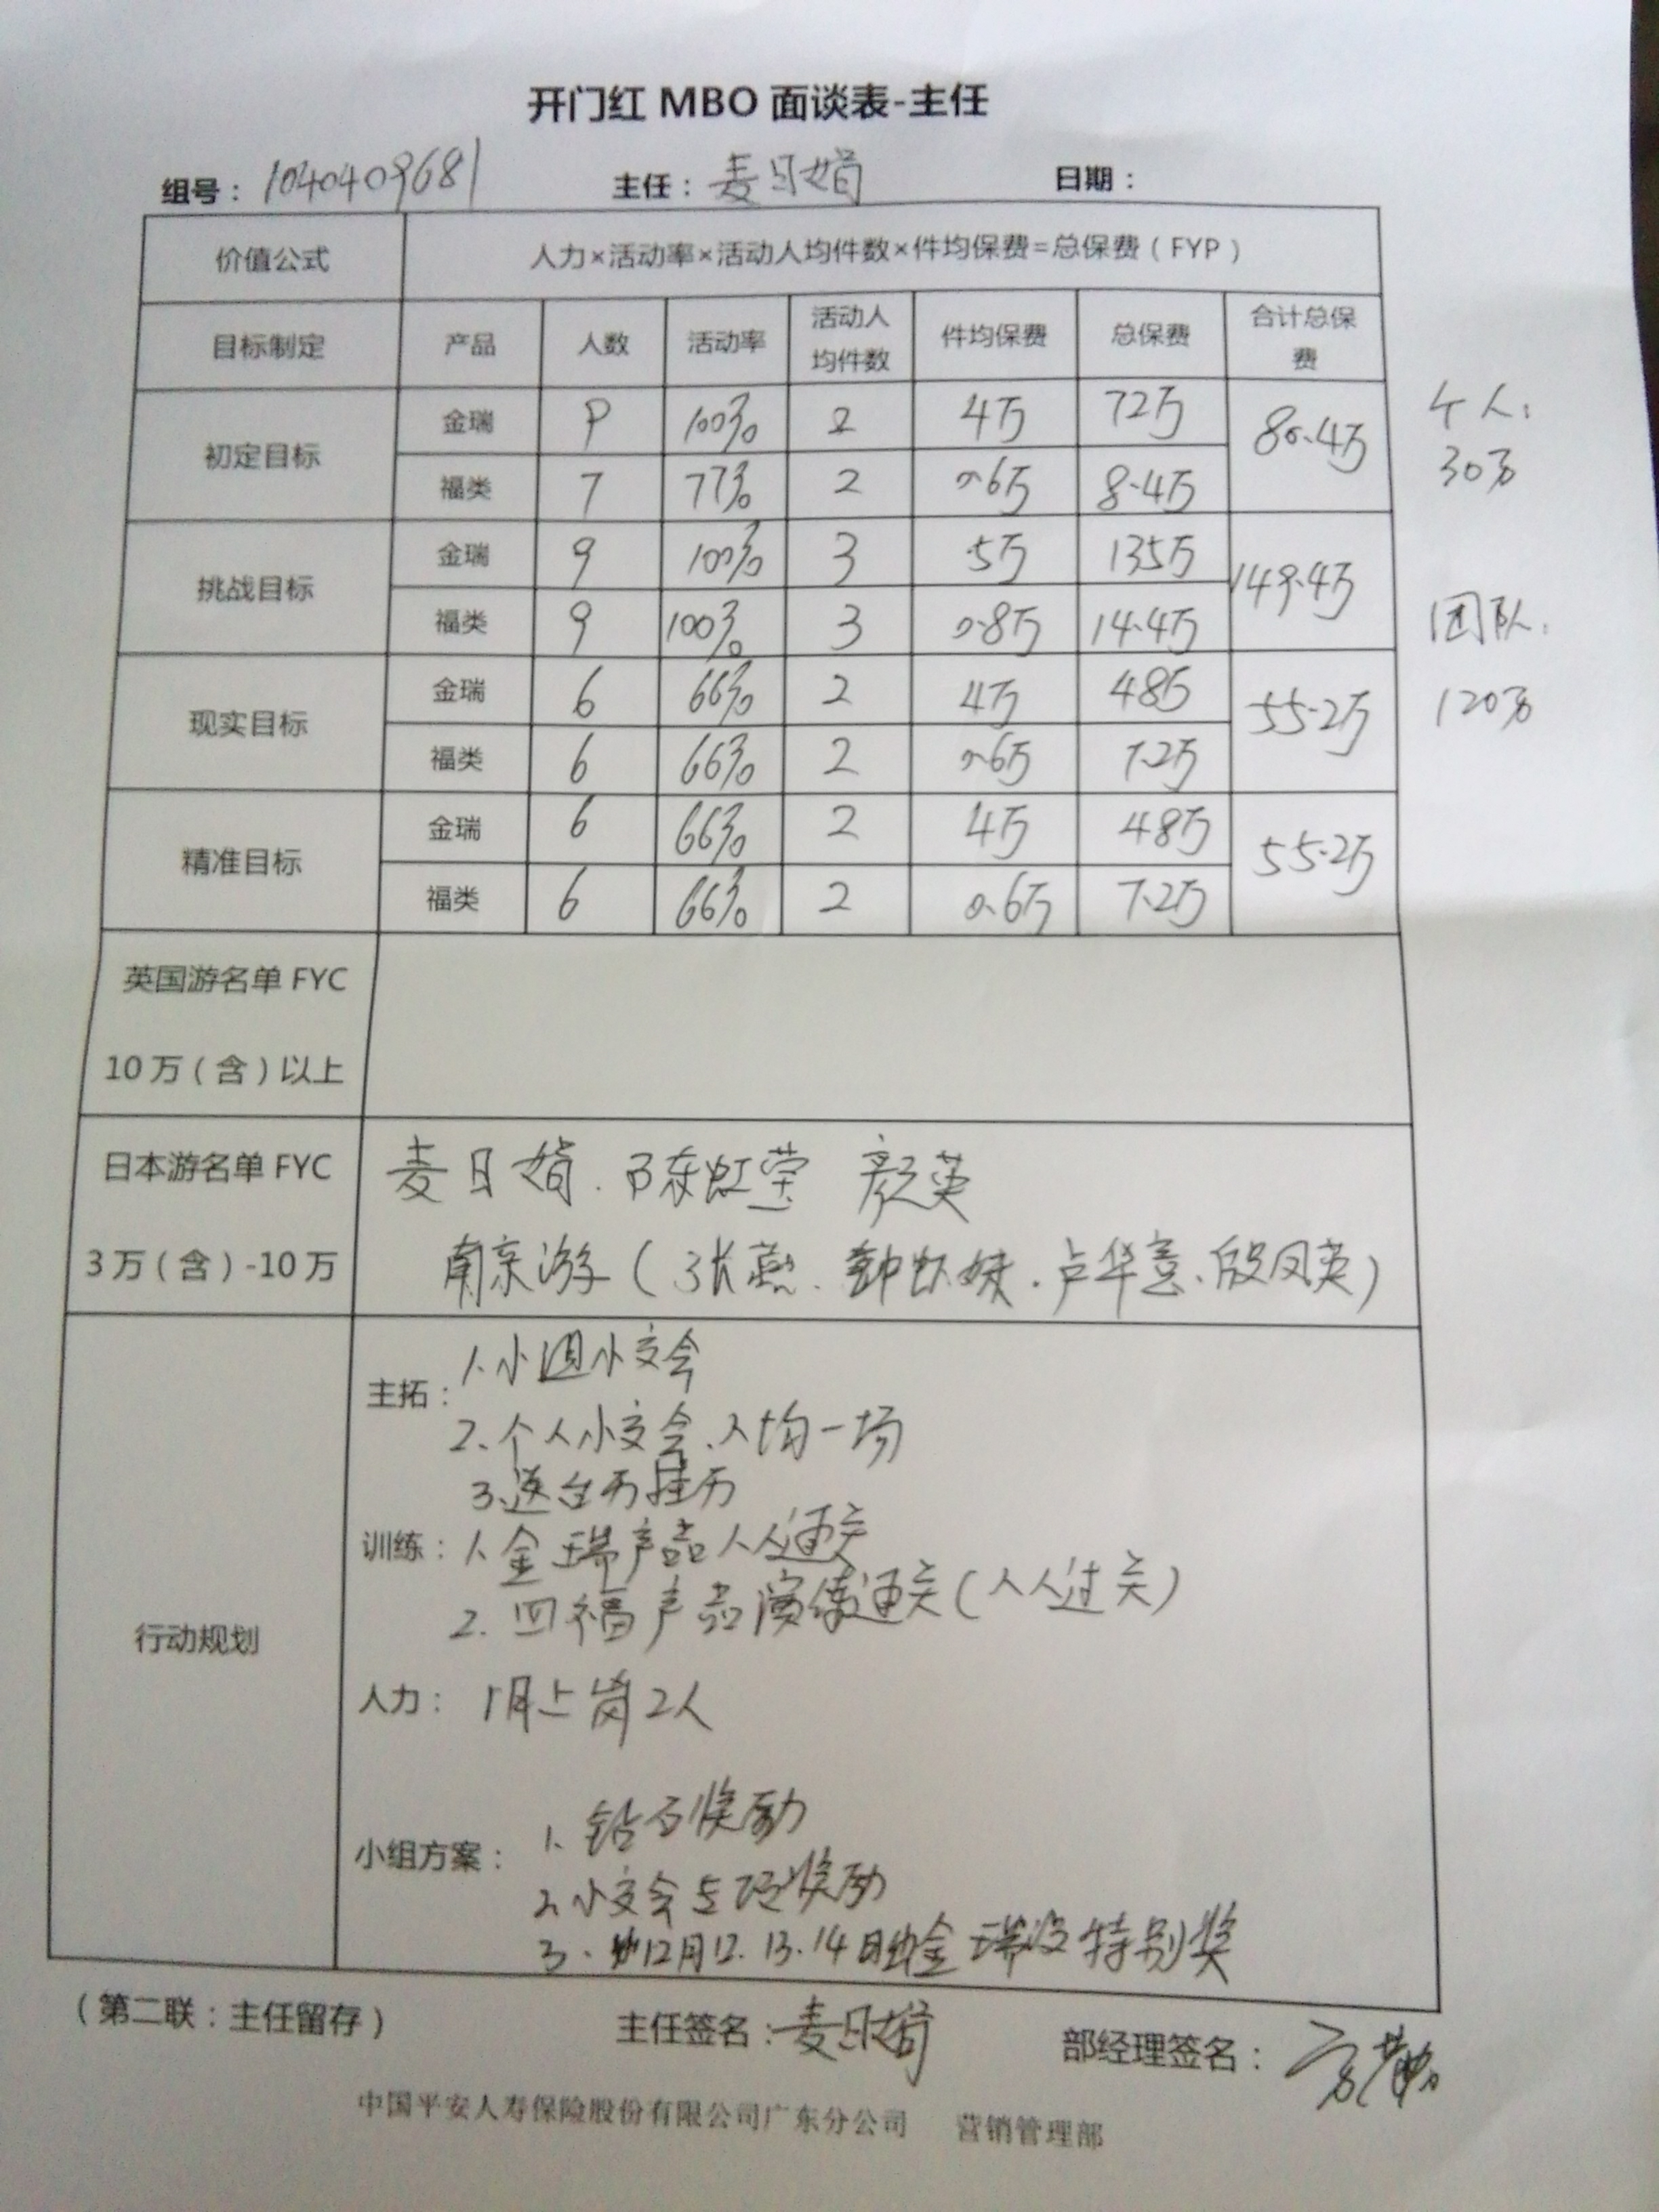 开门红 MBO 面谈表-主任
组号：1040409681 主任：麦日娟 日期：
价值公式 人力×活动率×活动人均件数×件均保费=总保费（FYP）
目标制定 产品 人数 活动率 活动人均件数 件均保费 总保费 合计总保费
初定目标 金瑞 9 100% 2 4万 72万 80.4万
福类 7 77% 2 0.6万 8.4万
挑战目标 金瑞 9 100% 3 5万 135万 149.4万
福类 9 100% 3 0.8万 14.4万
现实目标 金瑞 6 66% 2 4万 48万 55.2万
福类 6 66% 2 0.6万 7.2万
精准目标 金瑞 6 66% 2 4万 48万 55.2万
福类 6 66% 2 0.6万 7.2万
个人：
30万
团队：
120万
英国游名单 FYC
10 万（含）以上
日本游名单 FYC
3 万（含）-10 万
麦日娟、陈虹莹 颜英
南京游（张燕、钟虹妹、卢华意、殷凤英）
行动规划
主拓：1、小组小交会
2、个人小交会、人均一场
3、送台历挂历
训练：1、金瑞产品人人通关
2、四福产品演练通关（人人过关）
人力：1月上岗2人
小组方案：1、钻石奖励
2、小交会专项奖励
3、12月12、13、14日出金瑞设特别奖
（第二联：主任留存） 主任签名：麦日娟 部经理签名：
中国平安人寿保险股份有限公司广东分公司 营销管理部